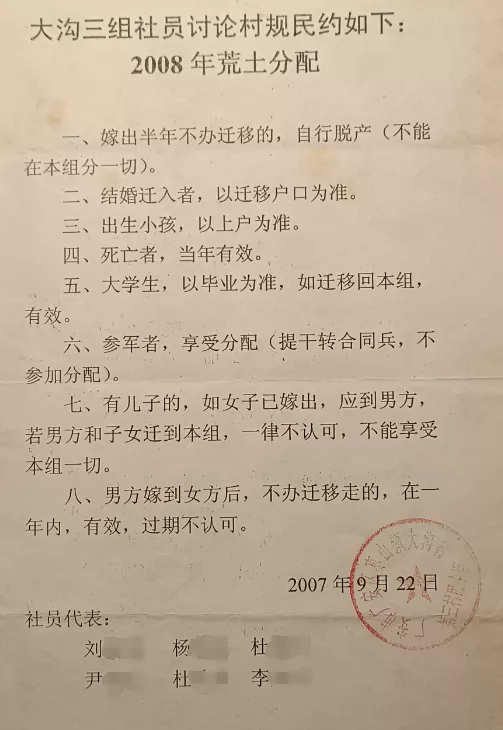 大沟三组社员讨论村规民约如下：
2008年荒土分配
一、嫁出半年不办迁移的，自行脱产（不能
在本组分一切）。
二、结婚迁入者，以迁移户口为准。
三、出生小孩，以上户为准。
四、死亡者，当年有效。
五、大学生，以毕业为准，如迁移回本组，
有效。
六、参军者，享受分配（提干转合同兵，不
参加分配）。
七、有儿子的，如女子已嫁出，应到男方，
若男方和子女迁到本组，一律不认可，不能享受
本组一切。
八、男方嫁到女方后，不办迁移走的，在一
年内，有效，过期不认可。
2007年9月22日
社员代表：
刘 杨 杜
尹 杜 李